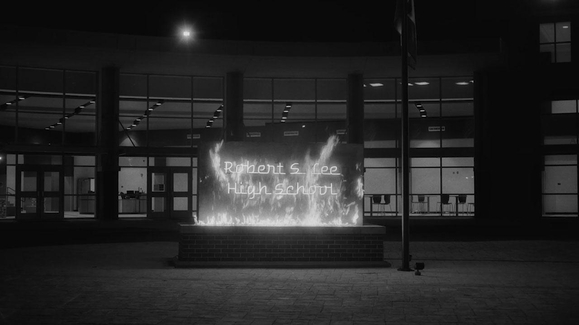 Robert S. Lee
High School